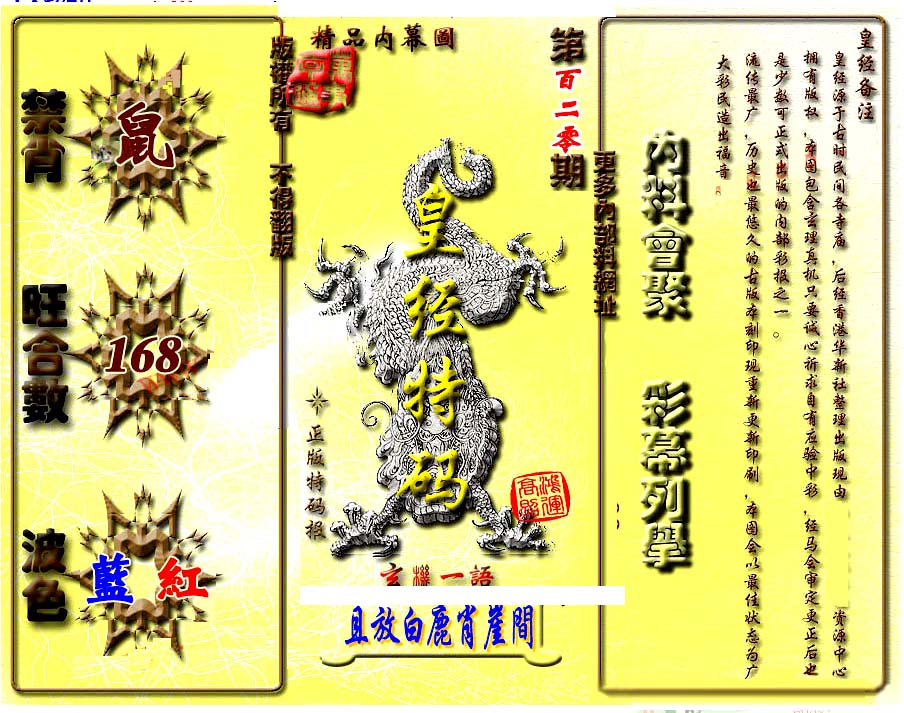 禁肖
鼠
旺合數
168
波色
藍 紅
版權所有 不得翻版
精品内幕圖
第百二零期
皇经特码
正版特码报
鴻運高照
玄機一語
且放白鹿肖崖間
更多內部料網址
内料會聚 彩幕列舉
皇经备注
皇经源于古时民间各寺庙，后经香港华新社整理出版现由 资源中心
拥有版权，本图包含玄理真机只要诚心祈求自有应验中彩，经马会审定更正后也
是少数可正式出版的内部彩报之一。
流传最广，历史也最悠久的古版本刻印现重新更新印刷，本图会以最佳状态为广
大彩民造出福音